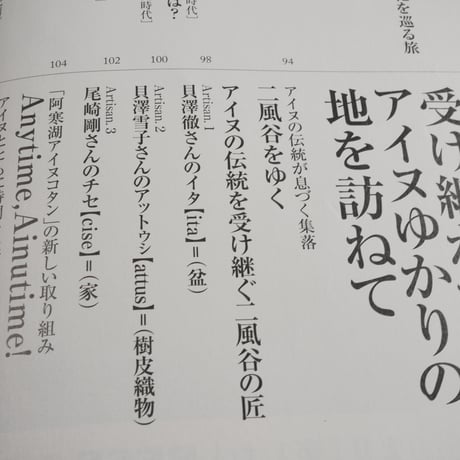 を巡る旅
は？
時代］
時代］
受け継が
アイヌゆかりの
地を訪ねて
94
アイヌの伝統が息づく集落
二風谷をゆく
アイヌの伝統を受け継ぐ二風谷の匠
98
Artisan. 1
貝澤徹さんのイタ【ita】＝（盆）
100
Artisan. 2
貝澤雪子さんのアットゥシ【attus】＝（樹皮織物）
102
Artisan. 3
尾崎剛さんのチセ【cise】＝（家）
104
「阿寒湖アイヌコタン」の新しい取り組み
Anytime, Ainutime!